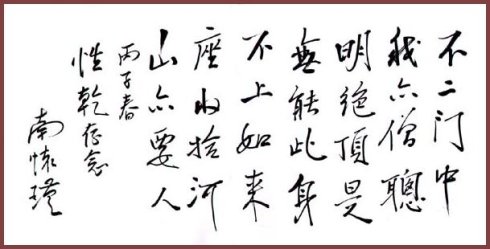 不二门中
我亦僧聰
明絶頂是
無能此身
不上如来
座收拾河
山亦要人
丙子春
性乾存念
南懷瑾